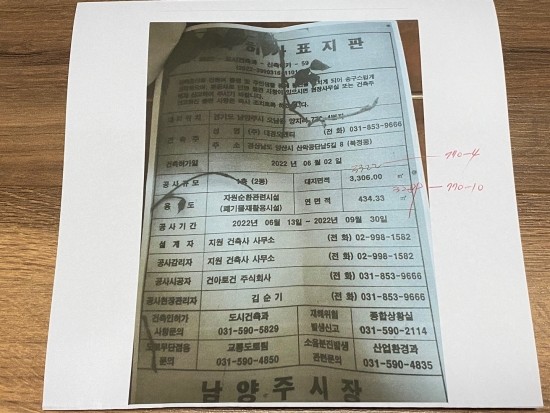 허가표지판
도시건축과 - 신축허가 - 59
대지위치 경기도 남양주시 오남읍 양지리
건축주 성명 (주) 대경오앤티 (전화) 031-853-9666
주소 경상남도 양산시 산막공단남5길 8 (북정동)
건축허가일 2022 년 06 월 02 일
3322 790-4
공사규모 1층 (2동) 대지면적 3,306.00 ㎡
770-10
용도 자원순환관련시설 (폐기물재활용시설) 연면적 434.33 ㎡
공사기간 2022년 06월 13일~2022년 09월 30일
설계자 지원 건축사 사무소 (전화) 02-998-1582
공사감리자 지원 건축사 사무소 (전화) 02-998-1582
공사시공자 건아토건 주식회사 (전화) 031-853-9666
공사현장관리자 김순기 (전화) 031-853-9666
건축인허가 사항문의 도시건축과 031-590-5829 재해위험 발생신고 종합상황실 031-590-2114
도로무단점용 문의 교통도로팀 031-590-4850 소음분진발생 관련문의 산업환경과 031-590-4835
남양주시장